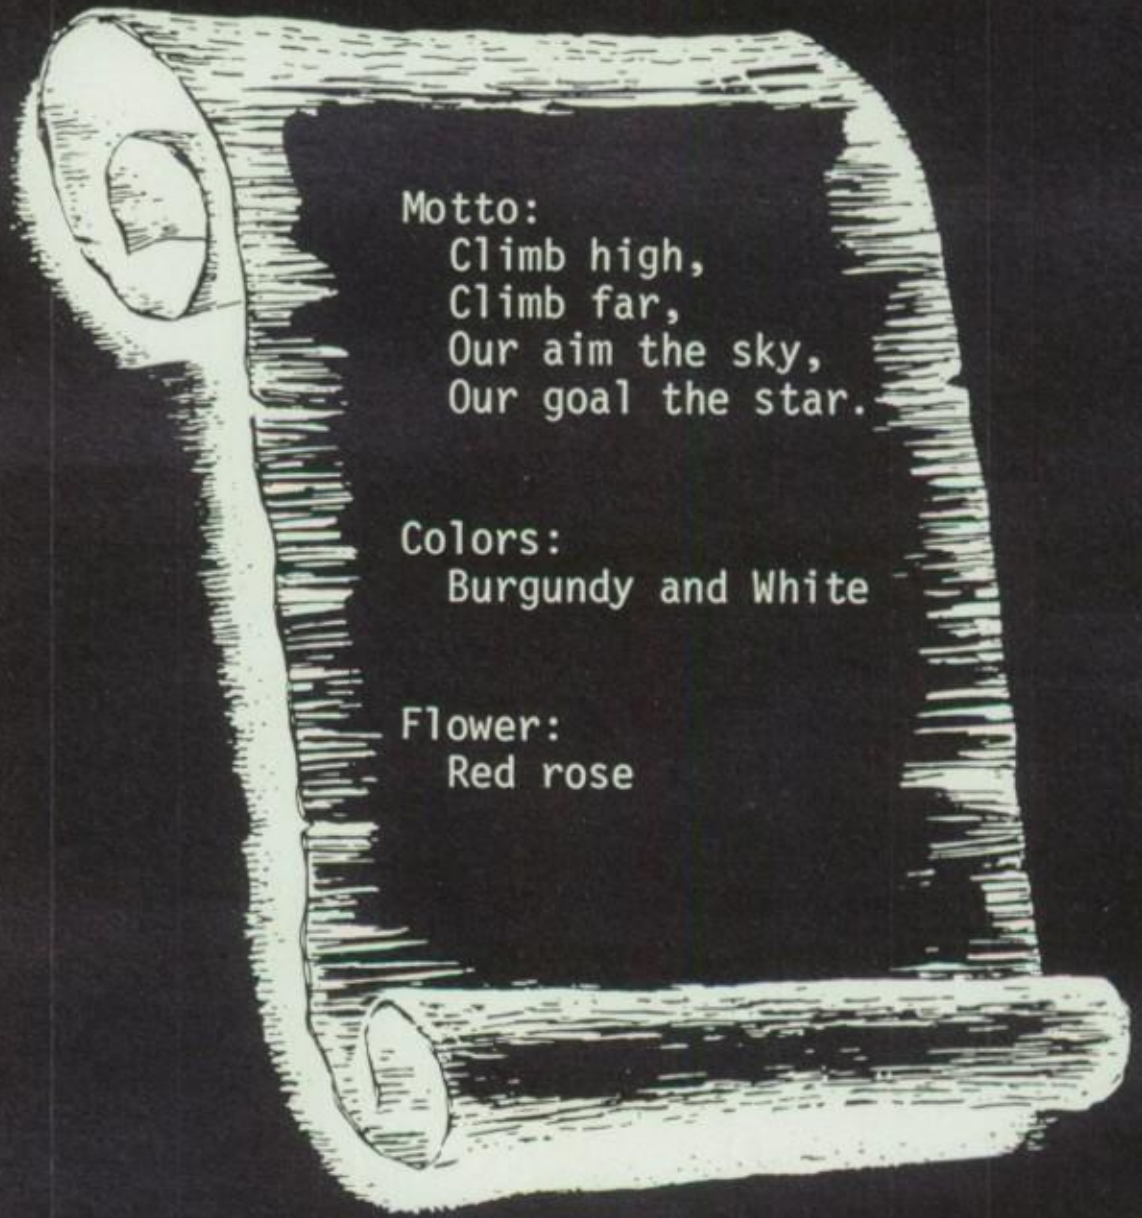 Motto:
Climb high,
Climb far,
Our aim the sky,
Our goal the star.
Colors:
Burgundy and White
Flower:
Red rose